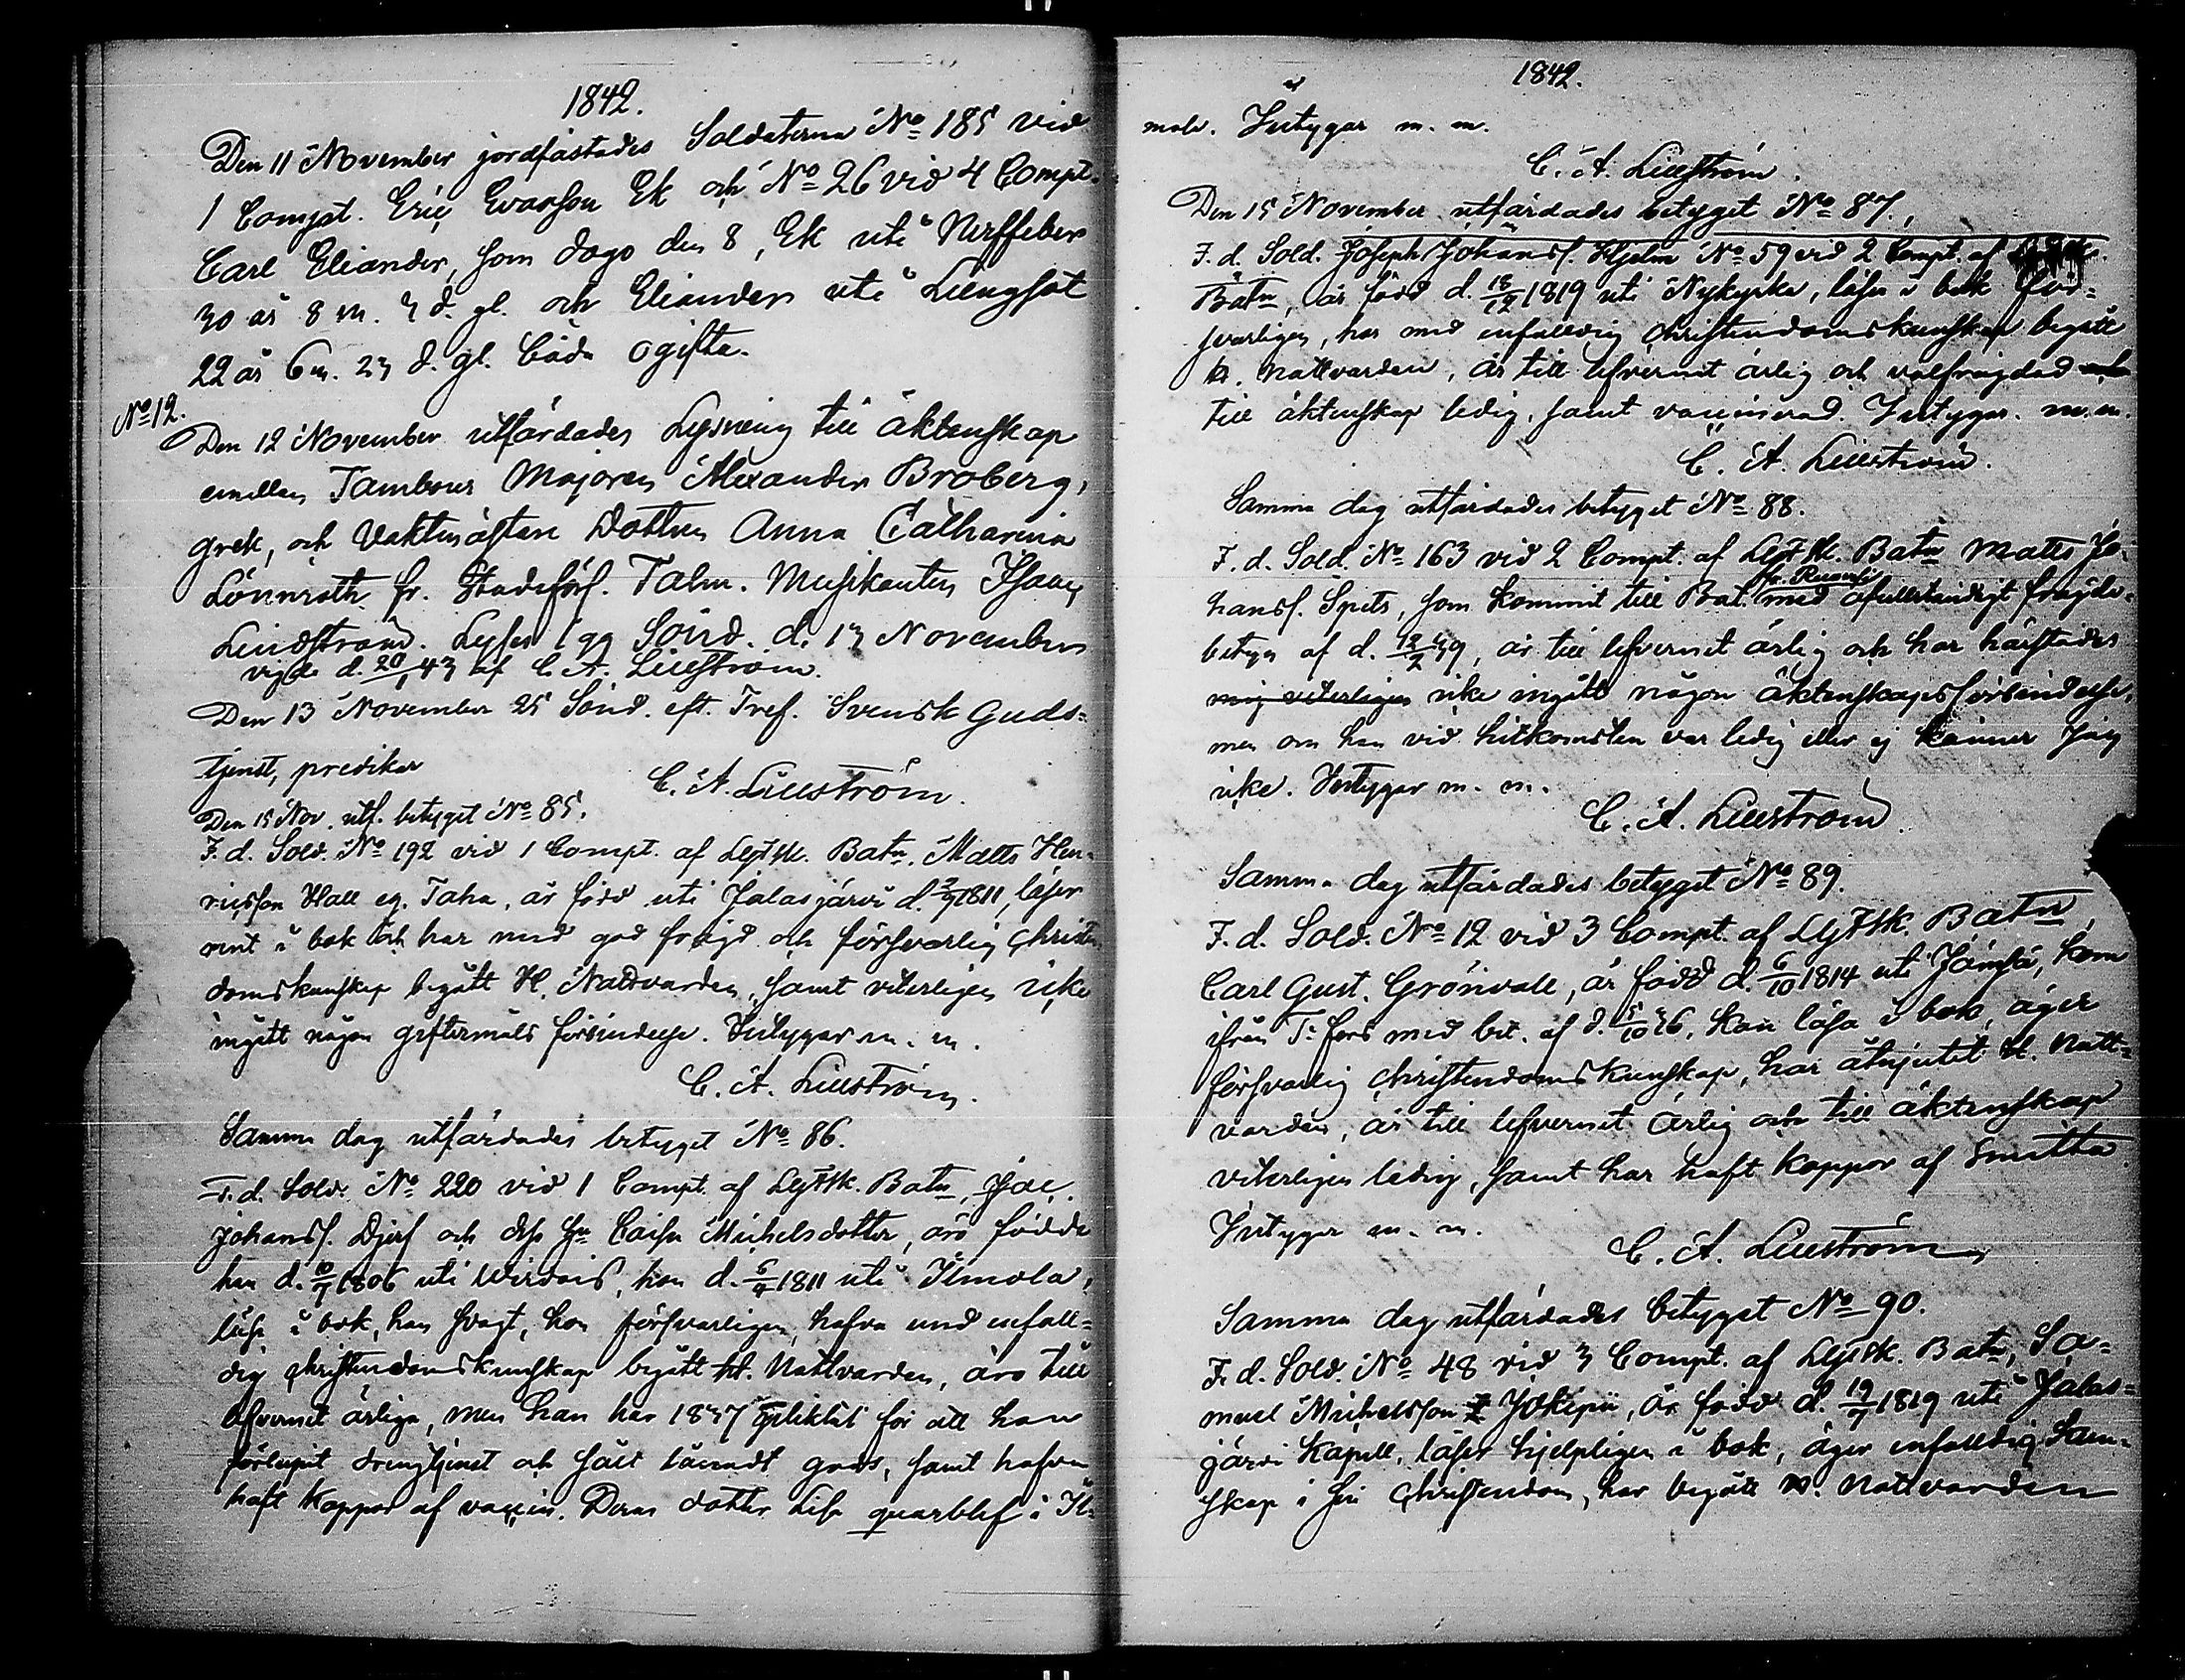 1842.
Den 11 November jordfästades Soldaterna No 185 vid
1 Compt. Eric Evasson Ek och No 26 vid 4 Compt.
Carl Eliander, som dogo den 8, Ek uti Nerffeber
30 år 8 m. 3 d. gl. och Eliander uti Lungsot
22 år 6 m. 23 d. gl. båda ogifta.
No 12.
Den 12 November utfärdades Lysning till äktenskap
emellan Tambour Majoren Alexander Broberg,
grek, och Vaktmästare Dottren Anna Catharina
Lönnroth fr. Stadsförs. Talm. Musikanten Isaac
Lindström. Lyses 1 gg Sönd. d. 13 November
vigde d. 20/1 43 af C. A. Lilleström.
Den 13 November 25 Sönd. eft. Tref. Svensk Guds-
tjenst, predikar
C. A. Lilleström.
Den 15 Nov. utf. betyget No 85.
F. d. Sold. No 192 vid 1 Compt. af Lgfsk. Batn. Matts Hen-
ricsson Hall eg. Taha, är född uti Jalasjärvi d. 2/9 1811, läser
rent i bok och har med god frägd och försvarlig Christen-
domskunskap begått H. Nattvarden, samt viterligen icke
ingått någon giftermåls förbindelse. Intygar m. m.
C. A. Lilleström.
Samma dag utfärdades betyget No 86.
F. d. Sold. No 220 vid 1 Compt. af Lgfsk. Batn, Jac.
Johanss. Djerf och dess hu Caisa Michelsdotter, äro födde
han d. 10/7 1806 uti Wirdois, hon d. 6/4 1811 uti Ilmola,
läsa i bok, han svagt, hon försvarligen, hafva med enfall-
dig christendomskunskap begått H. Nattvarden, äro till
lefvernet ärliga, men han har 1837 pliktat för att han
förlupit drengtjenst och sålt lånadt gods, samt hafva
haft Koppor af vaccin. Deras dotter Lisa quarblef i Il-
1842.
mola. Intygar m. m.
C. A. Lilleström.
Den 15 November utfärdades betyget No 87.,
F. d. Sold. Joseph Johanss. Hjelm No 59 vid 2 Compt. af
Batn, är född d. 18/12 1819 uti Nykyrka, läser i bok för-
svarligen, har med enfalldig christendomskunskap begått
H. Nattvarden, är till lefvernet ärlig och välfrägdad
till äktenskap ledig, samt vaccinerad. Intygar. m. m.
C. A. Lilleström.
Samma dag utfärdades betyget No 88.
F. d. Sold. No 163 vid 2 Compt. af Lgfsk. Batn Matts Jo-
hanss. Spets, som kommit till Bat. med ofullständigt frägde-
betyg af d. 12/2 39, är till lefvernet ärlig och har härstädes
mig viterligen icke ingått någon äktenskapsförbindelse,
men om han vid hitkomsten var ledig eller ej känner Jag
icke. Intygar m. m.
C. A. Lilleström.
Samma dag utfärdades betyget No 89.
F. d. Sold. No 12 vid 3 Compt. af Lgfsk. Batn,
Carl Gust. Grönvall, är född d. 6/10 1814 uti Jämsä, kom
ifrån T:fors med bet. af d. 5/10 36, kan läsa i bok, äger
försvarlig christendomskunskap, har åtnjutit H. Natt-
varden, är till lefvernet ärlig och till äktenskap
viterligen ledig, samt har haft koppor af Smitta.
Intygar m. m.
C. A. Lilleström
Samma dag utfärdades betyget No 90.
F. d. Sold. No 48 vid 3 Compt. af Lgfsk. Batn, Sa-
muel Michelsson Jokipii, är född d. 19/7 1819 uti Jalas-
järvi Kapell, läser hjelpligen i bok, äger enfalldig kun-
skap i sin Christendom, har begått H. Nattvarden